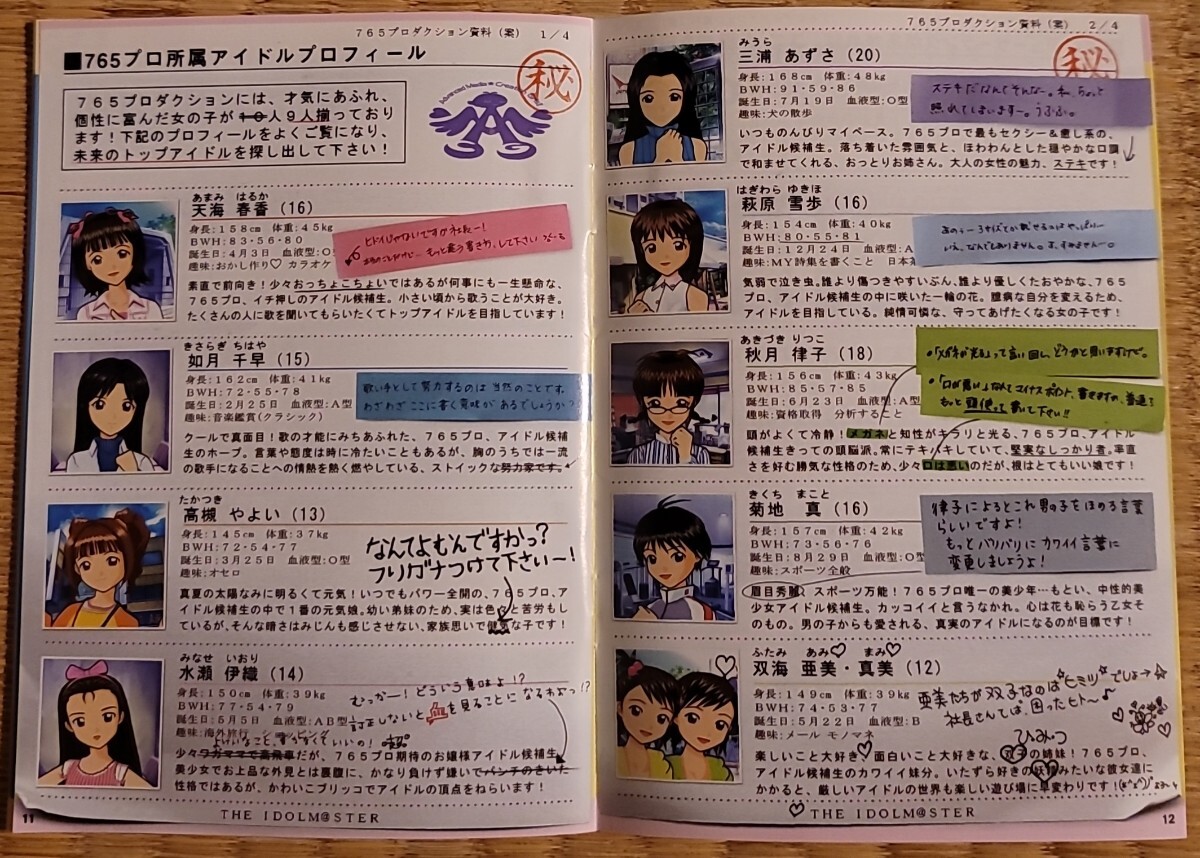 765プロダクション資料(案) 1/4
■765プロ所属アイドルプロフィール
秘
765プロダクションには、才気にあふれ、
個性に富んだ女の子が10人9人揃っており
ます!下記のプロフィールをよくご覧になり、
未来のトップアイドルを探し出して下さい!
あまみ はるか
天海 春香(16)
身長:158cm 体重:45kg
BWH:83・56・80
誕生日:4月3日 血液型:O
趣味:おかし作り♡ カラオケ
ヒドイじゃないですか社長ー!
もっと違う書き方、して下さい
素直で前向き!少々おっちょこちょいではあるが何事にも一生懸命な、
765プロ、イチ押しのアイドル候補生。小さい頃から歌うことが大好き。
たくさんの人に歌を聞いてもらいたくてトップアイドルを目指しています!
きさらぎ ちはや
如月 千早(15)
身長:162cm 体重:41kg
BWH:72・55・78
誕生日:2月25日 血液型:A型
趣味:音楽鑑賞(クラシック)
歌い手として努力するのは当然のことです。
わざわざここに書く意味があるでしょうか?
クールで真面目!歌の才能にみちあふれた、765プロ、アイドル候補
生のホープ。言葉や態度は時に冷たいこともあるが、胸のうちでは一流
の歌手になることへの情熱を熱く燃やしている、ストイックな努力家です。
たかつき
高槻 やよい(13)
身長:145cm 体重:37kg
BWH:72・54・77
誕生日:3月25日 血液型:O型
趣味:オセロ
なんてよむんですかっ?
フリガナつけて下さいー!
真夏の太陽なみに明るくて元気!いつでもパワー全開の、765プロ、ア
イドル候補生の中で1番の元気娘。幼い弟妹のため、実は色々と苦労もし
ているが、そんな暗さはみじんも感じさせない、家族思いで健気な子です!
みなせ いおり
水瀬 伊織(14)
身長:150cm 体重:39kg
BWH:77・54・79
誕生日:5月5日 血液型:AB型
趣味:海外旅行 ショッピング
むっかー!どういう意味よ!?
訂正しないと血を見ることになるわよっ!?
よけいなこと、書かなくていいの!
少々ワガママで高飛車だが、765プロ期待のお嬢様アイドル候補生。
美少女でお上品な外見とは裏腹に、かなり負けず嫌いでパンチのきいた
性格ではあるが、かわいこブリッコでアイドルの頂点をねらいます!
11
THE IDOLM@STER
765プロダクション資料(案) 2/4
秘
みうら
三浦 あずさ(20)
身長:168cm 体重:48kg
BWH:91・59・86
誕生日:7月19日 血液型:O型
趣味:犬の散歩
ステキだなんてそんな〜。私、ちょっと
照れてしまいます〜。うふふ。
いつものんびりマイペース。765プロで最もセクシー&癒し系の、
アイドル候補生。落ち着いた雰囲気と、ほわわんとした穏やかな口調
で和ませてくれる、おっとりお姉さん。大人の女性の魅力、ステキです!
はぎわら ゆきほ
萩原 雪歩(16)
身長:154cm 体重:40kg
BWH:80・55・81
誕生日:12月24日 血液型:A
趣味:MY詩集を書くこと 日本
いえ、なんでもありません。す、すみません〜。
気弱で泣き虫。誰より傷つきやすいぶん、誰より優しくたおやかな、765
プロ、アイドル候補生の中に咲いた一輪の花。臆病な自分を変えるため、
アイドルを目指している。純情可憐な、守ってあげたくなる女の子です!
あきづき りつこ
秋月 律子(18)
身長:156cm 体重:43kg
BWH:85・57・85
誕生日:6月23日 血液型:A型
趣味:資格取得 分析すること
・「メガネが光る」って言い回し、どうかと思いますけど。
・「口が悪い」なんてマイナスポイント、書きますか、普通?
もっと頭使って書いて下さい!!
頭がよくて冷静!メガネと知性がキラリと光る、765プロ、アイドル
候補生きっての頭脳派。常にテキパキしていて、堅実なしっかり者。率直
さを好む勝気な性格のため、少々口は悪いのだが、根はとてもいい娘です!
きくち まこと
菊地 真(16)
身長:157cm 体重:42kg
BWH:73・56・76
誕生日:8月29日 血液型:O型
趣味:スポーツ全般
律子によるとこれ男の子をほめる言葉
らしいですよ!
もっとバリバリにカワイイ言葉に
変更しましょうよ!
眉目秀麗、スポーツ万能!765プロ唯一の美少年…もとい、中性的美
少女アイドル候補生。カッコイイと言うなかれ。心は花も恥らう乙女そ
のもの。男の子からも愛される、真実のアイドルになるのが目標です!
ふたみ あみ♡ まみ♡
双海 亜美・真美(12)
身長:149cm 体重:39kg
BWH:74・53・77
誕生日:5月22日 血液型:B
趣味:メール モノマネ
亜美たちが双子なのは"ヒミツ"でしょ→☆
社長さんてば、困ったヒト〜♪
ひみつ
楽しいこと大好き♡面白いこと大好きな、双子の姉妹!765プロ、
アイドル候補生のカワイイ妹分。いたずら好きの妖精みたいな彼女達に
かかると、厳しいアイドルの世界も楽しい遊び場に早変わりです!
THE IDOLM@STER
12